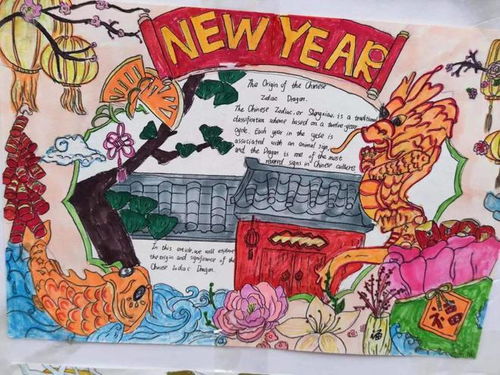 NEW YEAR
The Origin of the Chinese
Zodiac Dragon.
The Chinese Zodiac, or Shengxiao, is a traditional
classification scheme based on a twelve-year
cycle. Each year in the cycle is
associated with an animal sign,
and the Dragon is one of the most
revered signs in Chinese culture.
In this article, we will explore
the origin and significance of the
Chinese Zodiac Dragon.
福
福